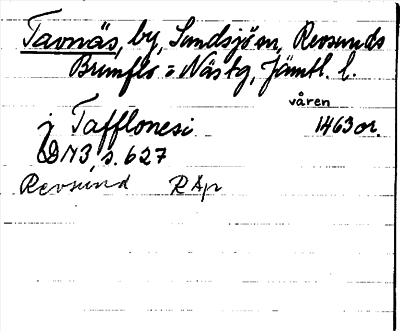 Tavnäs, by, Sundsjö sn, Revsunds
Brunflo = Näs tg, Jämtl. l.
våren
j Tafflonesi 1463 or.
DN3, s. 627
Revsund RAp